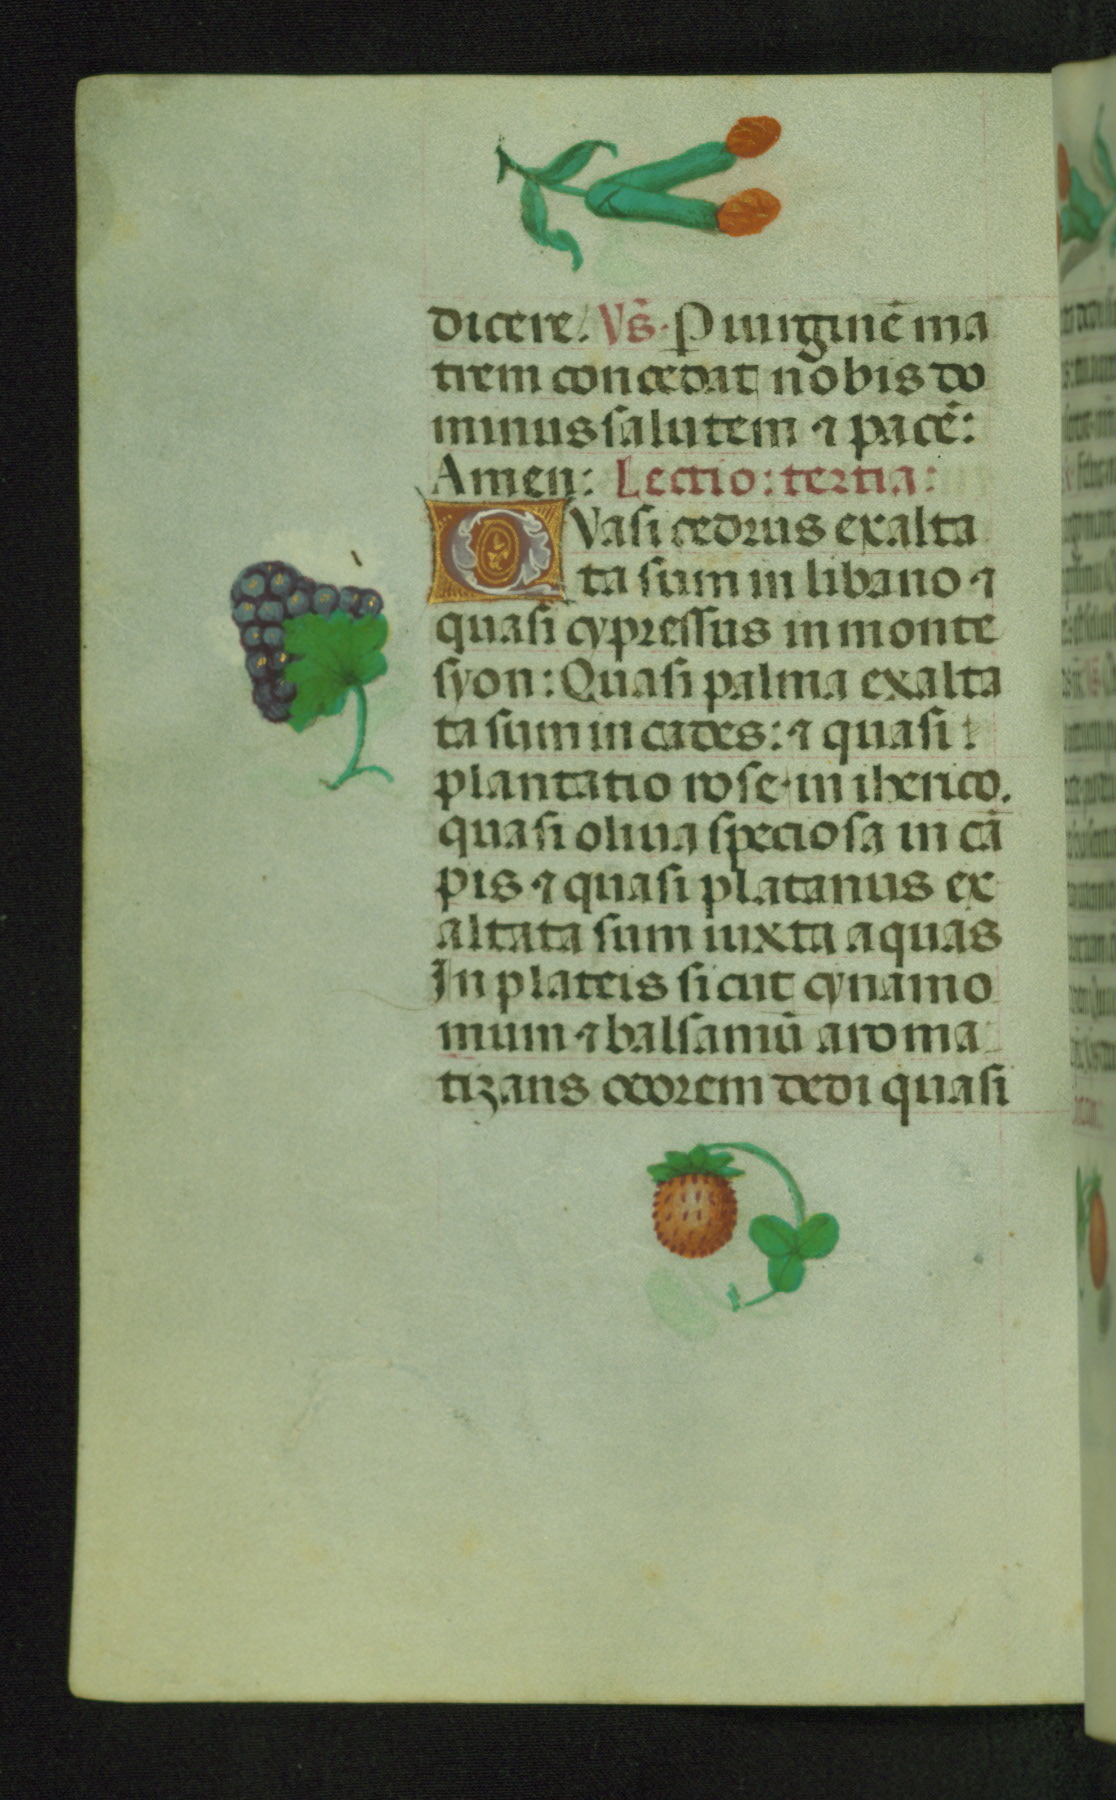 dicere. Vs̄. P̲ uirginē ma
trem concedat nobis do
minus salutem ⁊ pacē:
Amen: Lectio: tertia:
QVasi cedrus exalta
ta sum in libano ⁊
quasi cypressus in monte
syon: Quasi palma exalta
ta sum in cades: ⁊ quasi
plantatio rose in iherico.
quasi oliua speciosa in cā
pis ⁊ quasi platanus ex
altata sum iuxta aquas
In plateis sicut cynamo
mum ⁊ balsamū aroma
tizans odorem dedi quasi